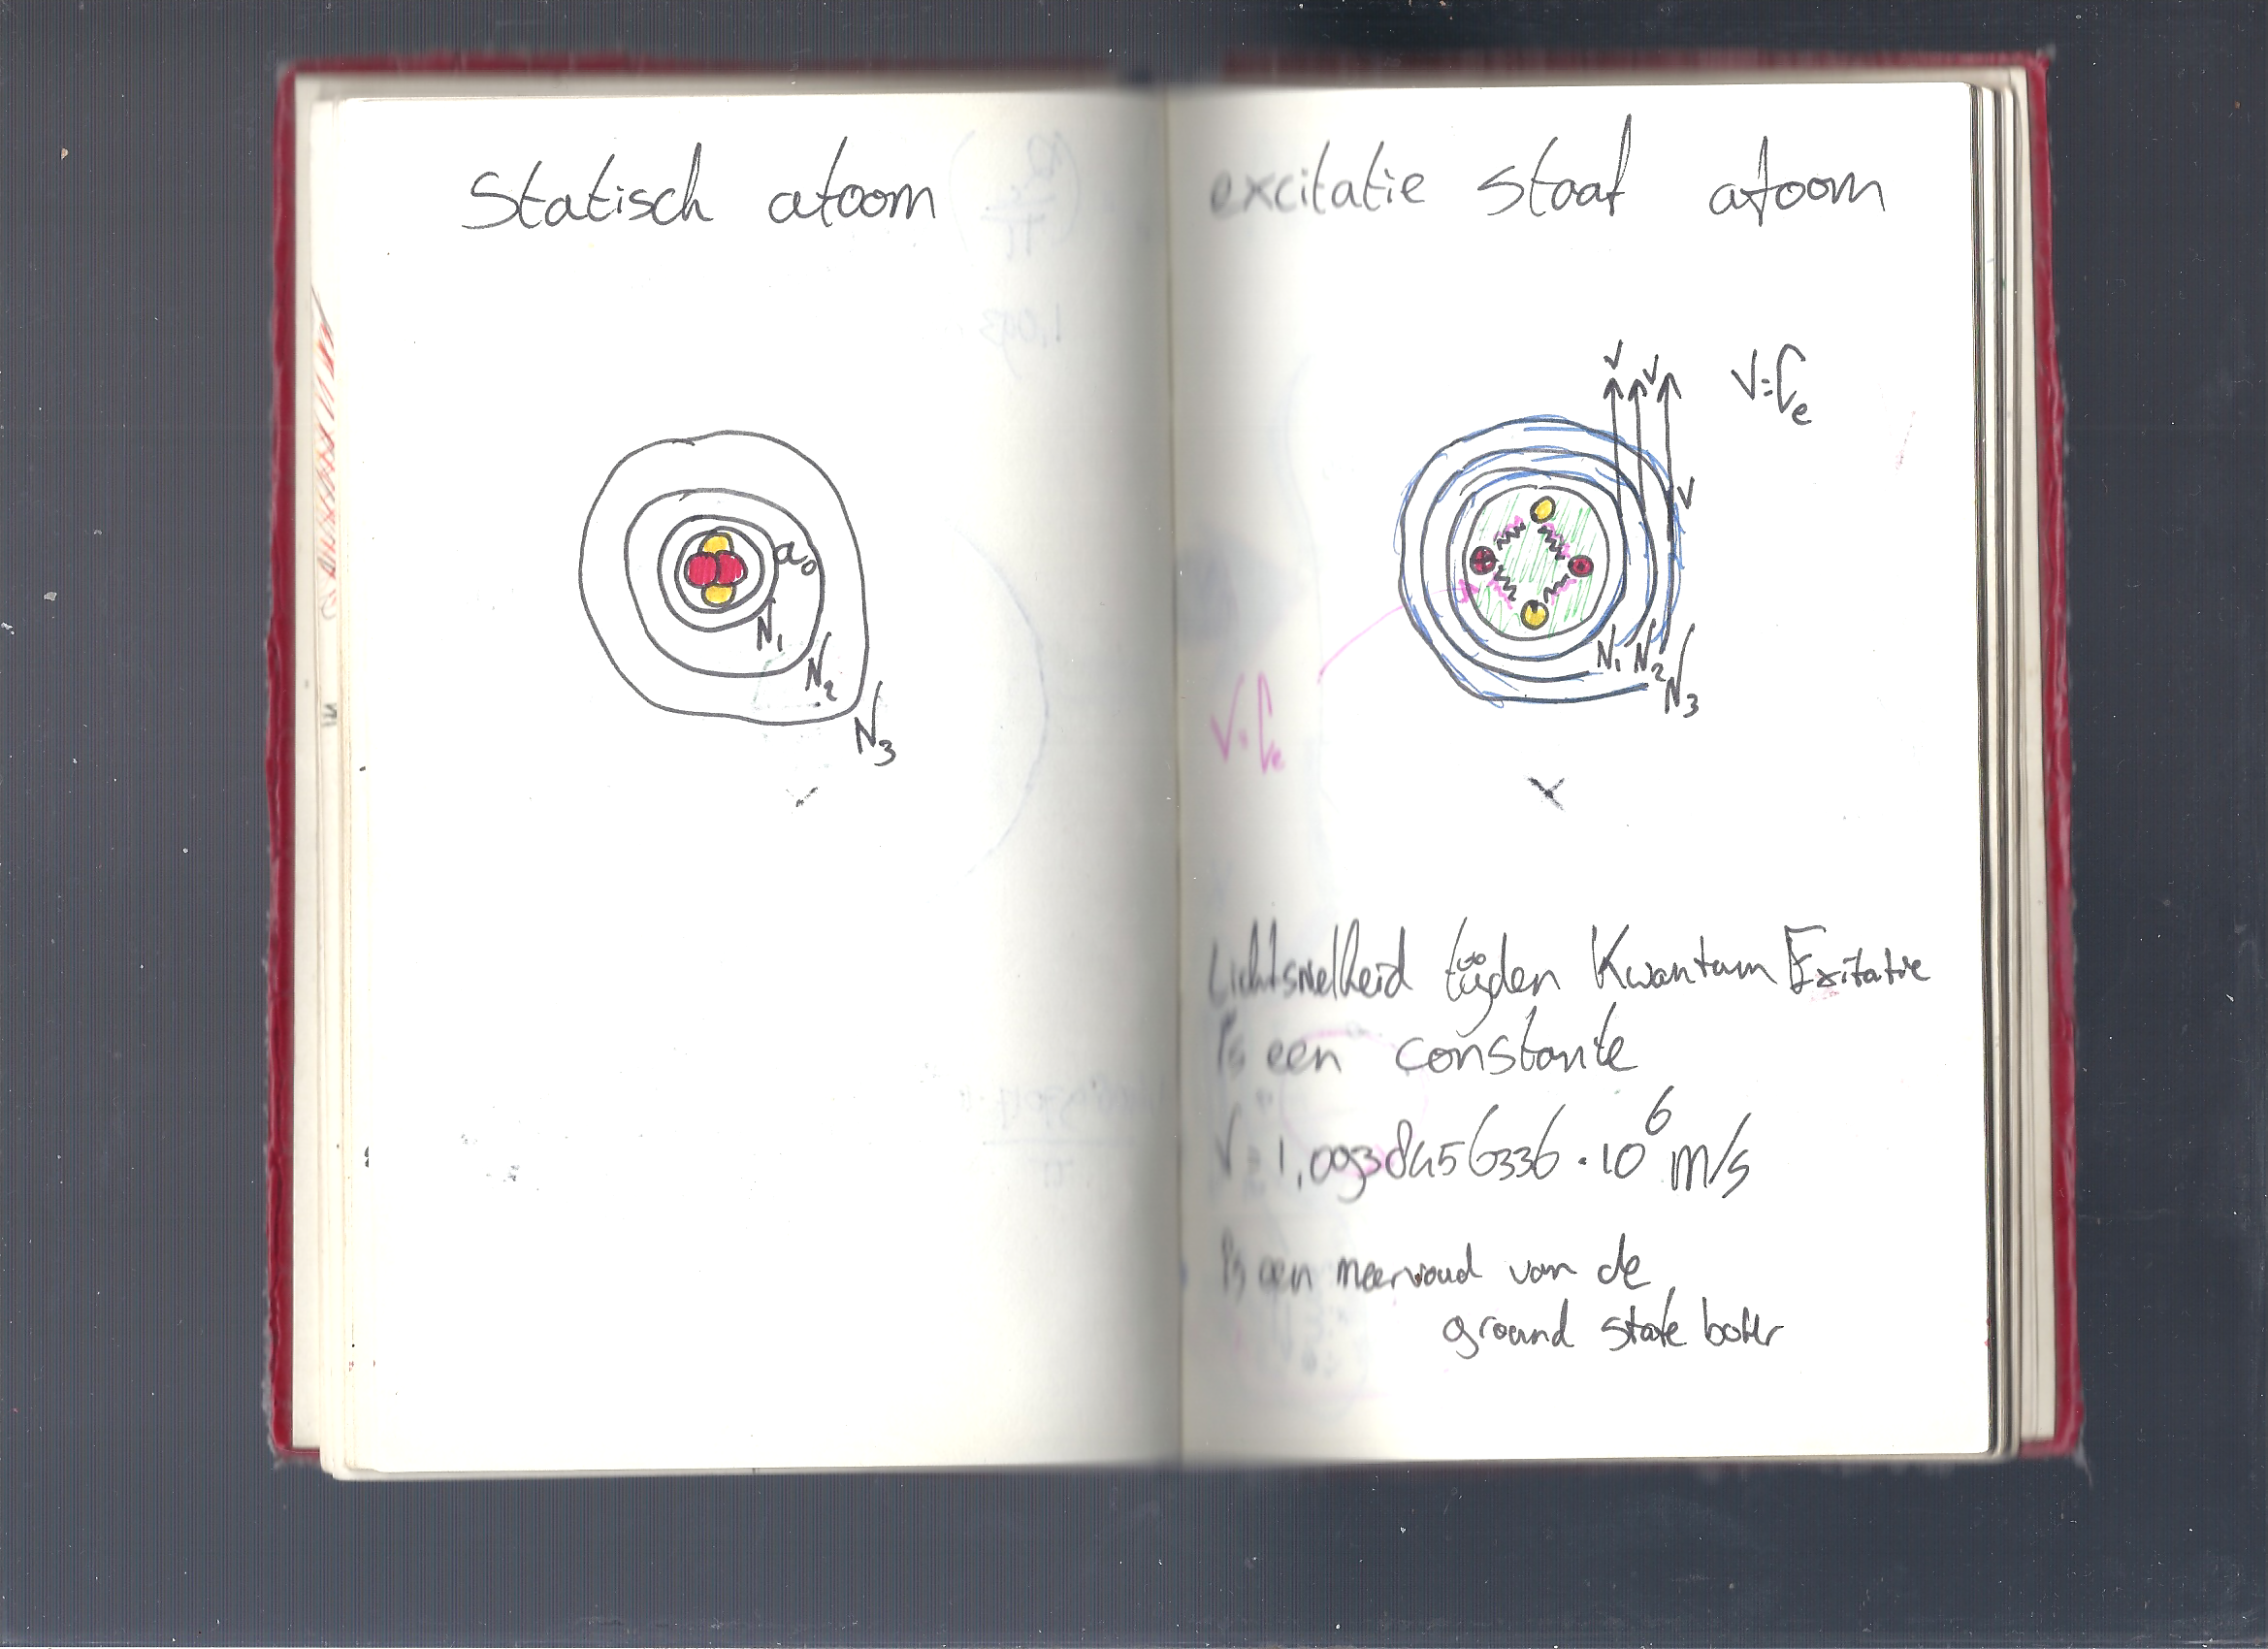 Statisch atoom
a₀
N₁
N₂
N₃
excitatie staat atoom
V V V
V=Cₑ
V
N₁ N₂ N₃
V=Cₑ
Lichtsnelheid tijden Kwantum Exitatie
is een constante
V = 1,0938456336 · 10⁶ m/s
is een meervoud van de
ground state bohr